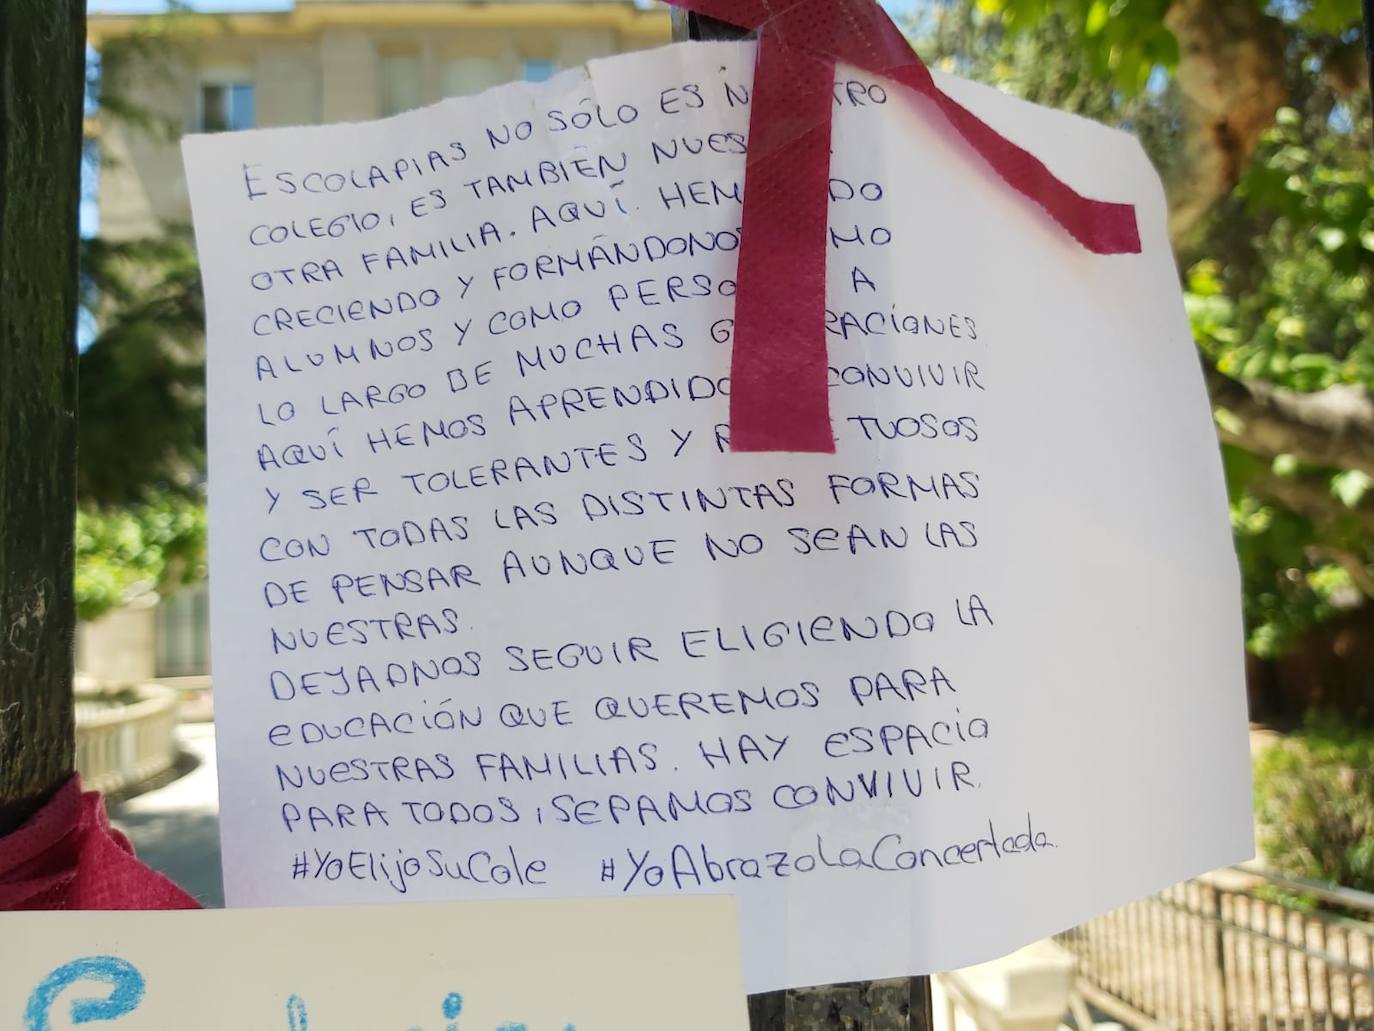 ESCOLAPIAS NO SÓLO ES N TRO
COLEGIO, ES TAMBIÉN NUES
OTRA FAMILIA. AQUÍ. HEM DO
CRECIENDO Y FORMÁNDONOS MO
ALUMNOS Y COMO PERSO A
LO LARGO DE MUCHAS G RACIONES
AQUÍ HEMOS APRENDIDO CONVIVIR
Y SER TOLERANTES Y R TUOSOS
CON TODAS LAS DISTINTAS FORMAS
DE PENSAR AUNQUE NO SEAN LAS
NUESTRAS.
DEJADNOS SEGUIR ELIGIENDO LA
EDUCACIÓN QUE QUEREMOS PARA
NUESTRAS FAMILIAS. HAY ESPACIO
PARA TODOS, SEPAMOS CONVIVIR.
#YoElijoSuCole #YoAbrazoLaConcertada.